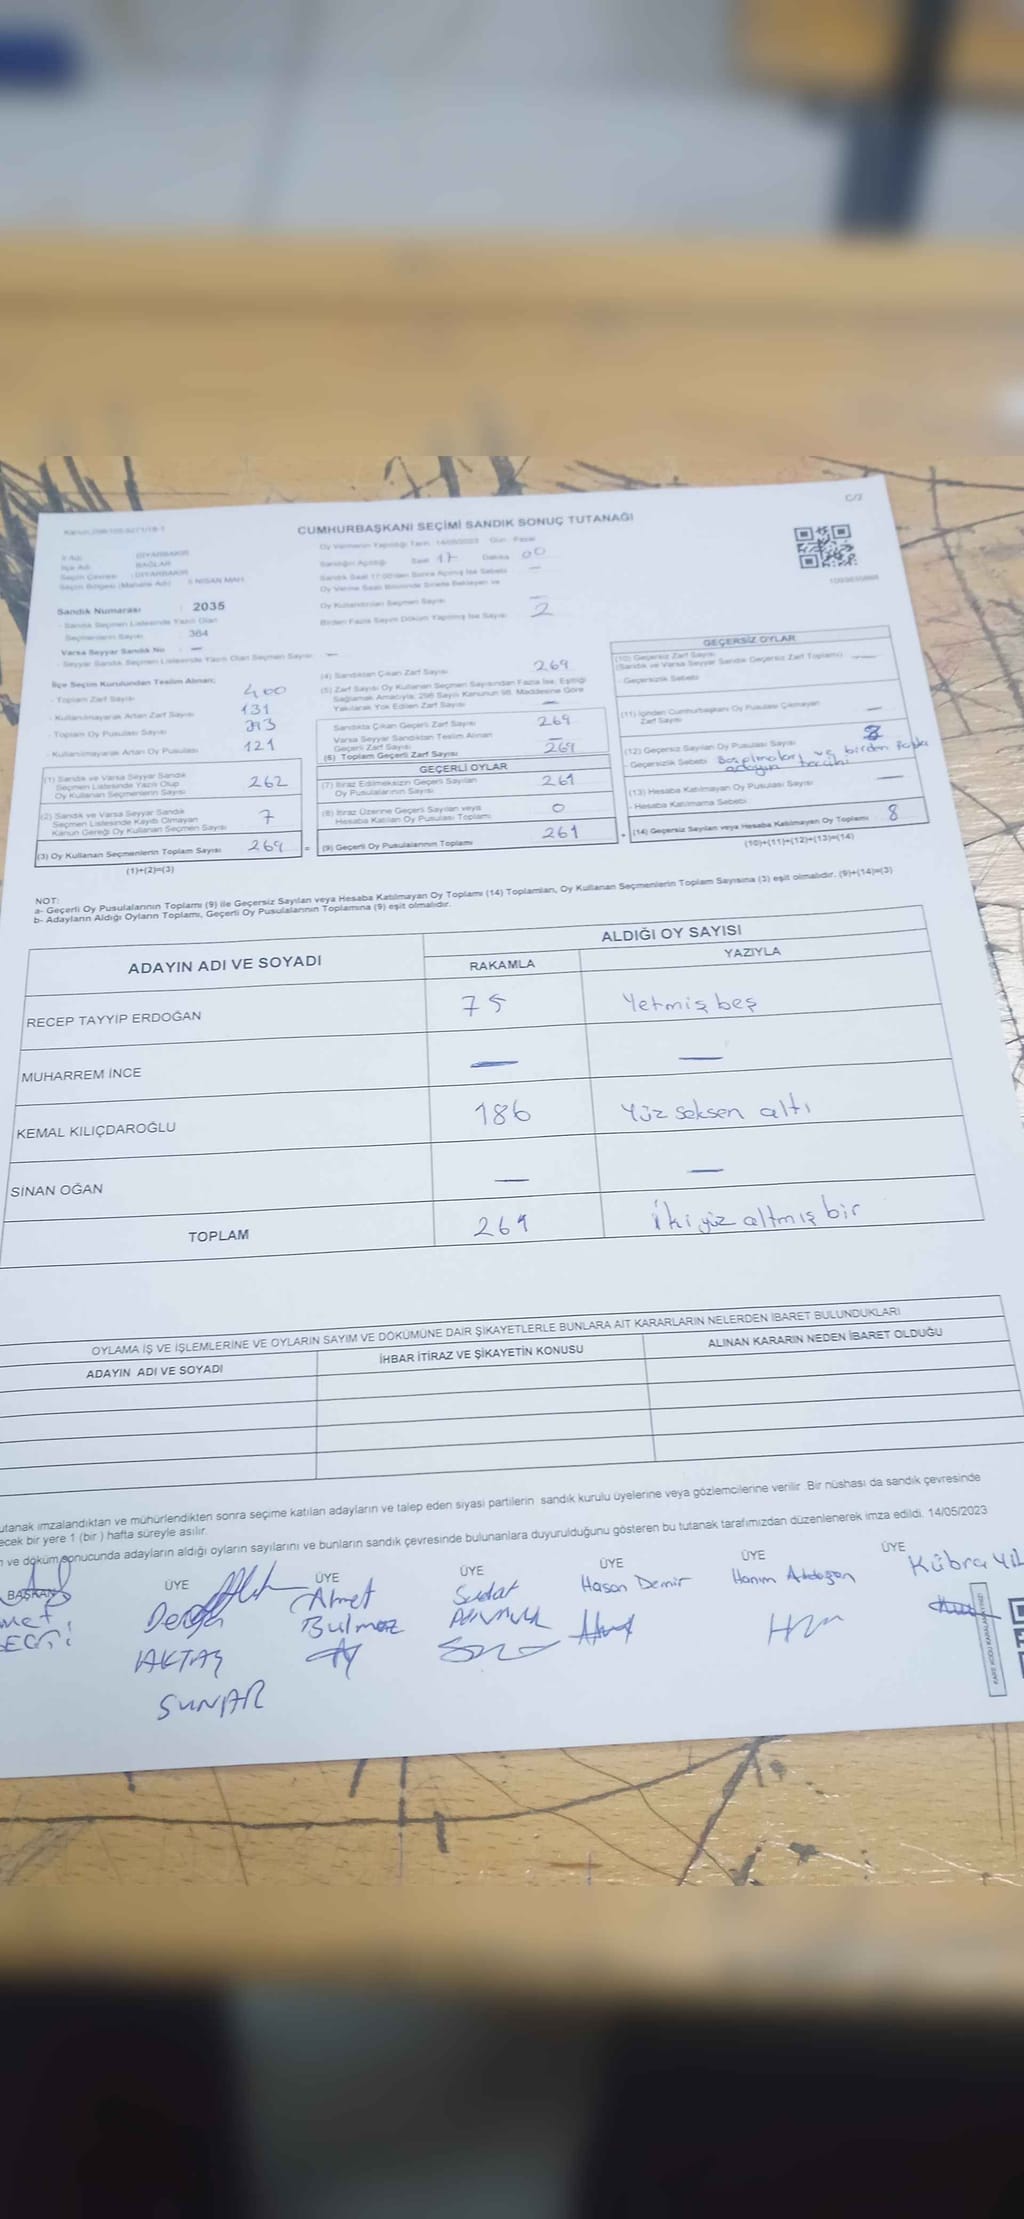 C/2
CUMHURBAŞKANI SEÇİMİ SANDIK SONUÇ TUTANAĞI
İl Adı : DİYARBAKIR
İlçe Adı : BAĞLAR
Seçim Çevresi : DİYARBAKIR
Seçim Bölgesi (Mahalle Adı) : 5 NİSAN MAH.
Sandık Numarası : 2035
- Sandık Seçmen Listesinde Yazılı Olan
Seçmenlerin Sayısı : 364
Varsa Seyyar Sandık No : —
- Seyyar Sandık Seçmen Listesinde Yazılı Olan Seçmen Sayısı : —
Oy Vermenin Yapıldığı Tarih: 14/05/2023 Gün: Pazar
Sandığın Açıldığı Saat 17 Dakika 00
Sandık Saat 17:00'den Sonra Açılmış İse Sebebi —
Oy Verme Saati Bitiminde Sırada Bekleyen ve
Oy Kullandırılan Seçmen Sayısı —
Birden Fazla Sayım Döküm Yapılmış İse Sayısı 2
İlçe Seçim Kurulundan Teslim Alınan;
- Toplam Zarf Sayısı 400
- Kullanılmayarak Artan Zarf Sayısı 131
- Toplam Oy Pusulası Sayısı 393
- Kullanılmayarak Artan Oy Pusulası 121
(1) Sandık ve Varsa Seyyar Sandık
Seçmen Listesinde Yazılı Olup
Oy Kullanan Seçmenlerin Sayısı 262
(2) Sandık ve Varsa Seyyar Sandık
Seçmen Listesinde Kayıtlı Olmayan
Kanun Gereği Oy Kullanan Seçmen Sayısı 7
(3) Oy Kullanan Seçmenlerin Toplam Sayısı 269
(1)+(2)=(3)
(4) Sandıktan Çıkan Zarf Sayısı 269
(5) Zarf Sayısı Oy Kullanan Seçmen Sayısından Fazla İse, Eşitliği
Sağlamak Amacıyla; 298 Sayılı Kanunun 98. Maddesine Göre
Yakılarak Yok Edilen Zarf Sayısı —
Sandıkta Çıkan Geçerli Zarf Sayısı 269
Varsa Seyyar Sandıktan Teslim Alınan
Geçerli Zarf Sayısı —
(6) Toplam Geçerli Zarf Sayısı 269
GEÇERLİ OYLAR
(7) İtiraz Edilmeksizin Geçerli Sayılan
Oy Pusulalarının Sayısı 261
(8) İtiraz Üzerine Geçerli Sayılan veya
Hesaba Katılan Oy Pusulası Toplamı 0
(9) Geçerli Oy Pusulalarının Toplamı 261
GEÇERSİZ OYLAR
(10) Geçersiz Zarf Sayısı
(Sandık ve Varsa Seyyar Sandık Geçersiz Zarf Toplamı) —
- Geçersizlik Sebebi
(11) İçinden Cumhurbaşkanı Oy Pusulası Çıkmayan
Zarf Sayısı —
(12) Geçersiz Sayılan Oy Pusulası Sayısı 8
- Geçersizlik Sebebi ve birden fazla
(13) Hesaba Katılmayan Oy Pusulası Sayısı —
- Hesaba Katılmama Sebebi
(14) Geçersiz Sayılan veya Hesaba Katılmayan Oy Toplamı 8
(10)+(11)+(12)+(13)=(14)
NOT:
a- Geçerli Oy Pusulalarının Toplamı (9) ile Geçersiz Sayılan veya Hesaba Katılmayan Oy Toplamı (14) Toplamları, Oy Kullanan Seçmenlerin Toplam Sayısına (3) eşit olmalıdır. (9)+(14)=(3)
b- Adayların Aldığı Oyların Toplamı, Geçerli Oy Pusulalarının Toplamına (9) eşit olmalıdır.
ADAYIN ADI VE SOYADI
ALDIĞI OY SAYISI
RAKAMLA YAZIYLA
RECEP TAYYİP ERDOĞAN 75 Yetmiş beş
MUHARREM İNCE — —
KEMAL KILIÇDAROĞLU 186 Yüz seksen altı
SİNAN OĞAN — —
TOPLAM 261 İki yüz altmış bir
OYLAMA İŞ VE İŞLEMLERİNE VE OYLARIN SAYIM VE DÖKÜMÜNE DAİR ŞİKAYETLERLE BUNLARA AİT KARARLARIN NELERDEN İBARET BULUNDUKLARI
ADAYIN ADI VE SOYADI İHBAR İTİRAZ VE ŞİKAYETİN KONUSU ALINAN KARARIN NEDEN İBARET OLDUĞU
utanak imzalandıktan ve mühürlendikten sonra seçime katılan adayların ve talep eden siyasi partilerin sandık kurulu üyelerine veya gözlemcilerine verilir. Bir nüshası da sandık çevresinde
ecek bir yere 1 (bir ) hafta süreyle asılır.
ve döküm sonucunda adayların aldığı oyların sayılarını ve bunların sandık çevresinde bulunanlara duyurulduğunu gösteren bu tutanak tarafımızdan düzenlenerek imza edildi. 14/05/2023
BAŞKAN ÜYE ÜYE ÜYE ÜYE ÜYE ÜYE
Derya AKTAŞ SUNAR
Ahmet Bulmaz
Sedat
Hasan Demir
Hanım Akdoğan
Kübra